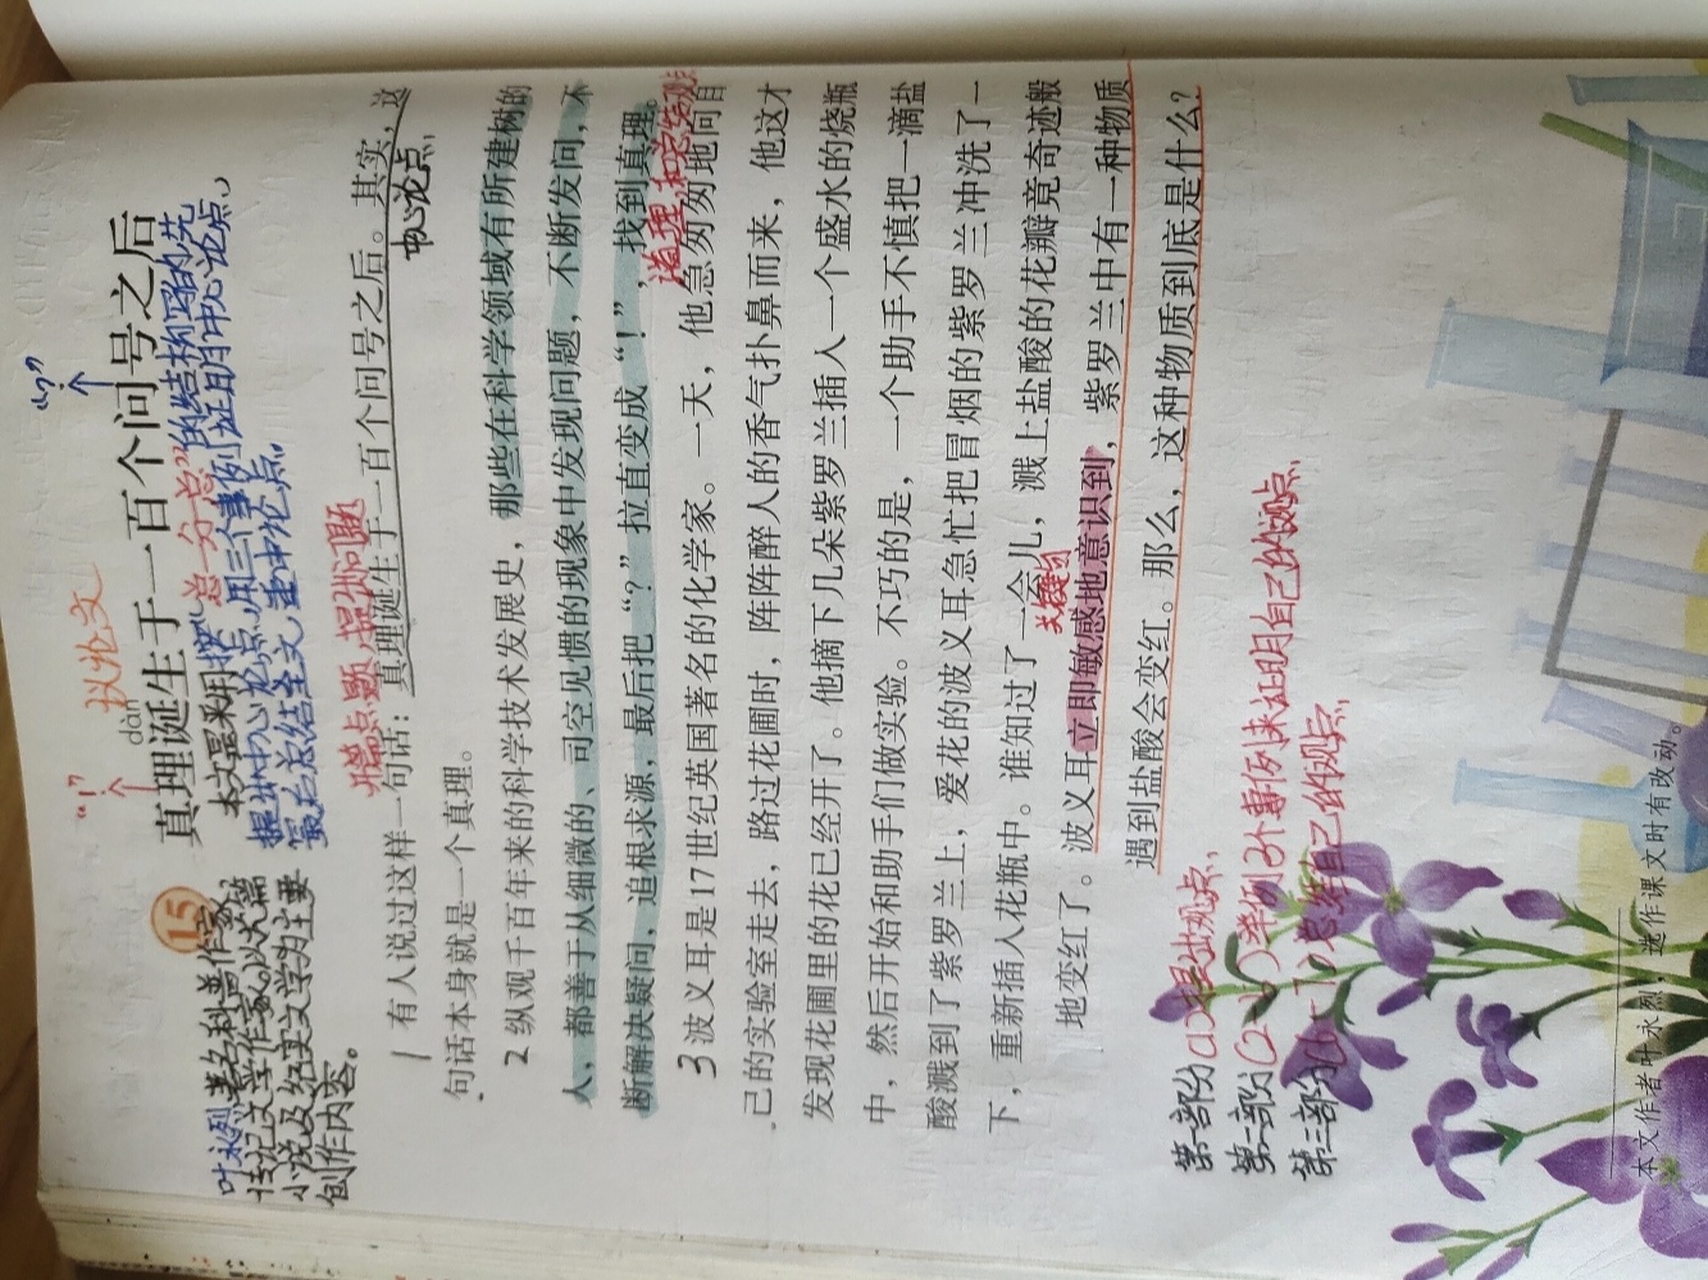 “!”
“?”
议论文
dàn
15 真理诞生于一百个问号之后
叶永烈 著名科普作家,
传记文学作家。以长篇
小说及纪实文学为主要
创作内容。
本文是采用撰“总一分一总”的结构写的,先
提出中心论点,用三个事例证明中心论点,
最后总结全文,重申论点。
开篇点题,提出问题
1 有人说过这样一句话:真理诞生于一百个问号之后。其实,这
句话本身就是一个真理。
中心论点
2 纵观千百年来的科学技术发展史,那些在科学领域有所建树的
人,都善于从细微的、司空见惯的现象中发现问题,不断发问,不
断解决疑问,追根求源,最后把“?”拉直变成“!”,找到真理。
道理和总结观点
3 波义耳是17世纪英国著名的化学家。一天,他急匆匆地向自
己的实验室走去,路过花圃时,阵阵醉人的香气扑鼻而来,他这才
发现花圃里的花已经开了。他摘下几朵紫罗兰插入一个盛水的烧瓶
中,然后开始和助手们做实验。不巧的是,一个助手不慎把一滴盐
酸溅到了紫罗兰上,爱花的波义耳急忙把冒烟的紫罗兰冲洗了一
下,重新插入花瓶中。谁知过了一会儿,溅上盐酸的花瓣竟奇迹般
关键句
地变红了。波义耳立即敏感地意识到,紫罗兰中有一种物质
遇到盐酸会变红。那么,这种物质到底是什么?
第一部分(1)提出观点,
第二部分(2~5)举例3个事例来证明自己的观点,
第三部分(6~7)总结自己的观点,
本文作者叶永烈,选作课文时有改动。